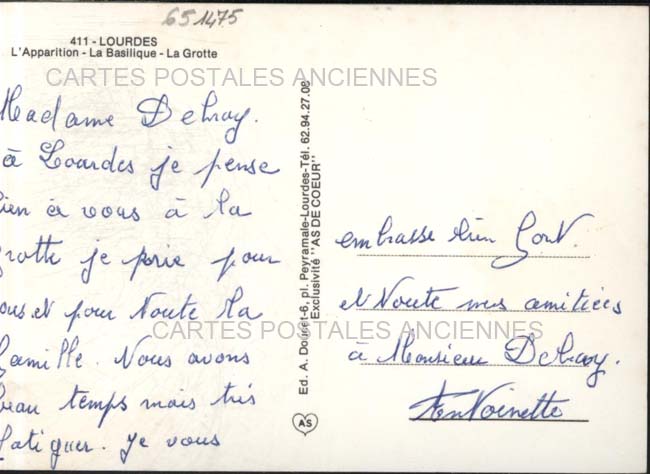 651475
411 - LOURDES
L'Apparition - La Basilique - La Grotte
CARTES POSTALES ANCIENNES
Madame Delray.
à Lourdes je pense
ien à vous à la
rotte je prie pour
ous et pour toute la
famille. Nous avons
eau temps mais très
fatiguer. je vous
Ed. A. Doucet-6, pl. Peyramale-Lourdes-Tél. 62.94.27.08
Exclusivité "AS DE COEUR"
AS
embrasse bien fort.
et toute mes amitiées
CARTES POSTALES ANCIENNES
à Monsieur Delray.
Antoinette